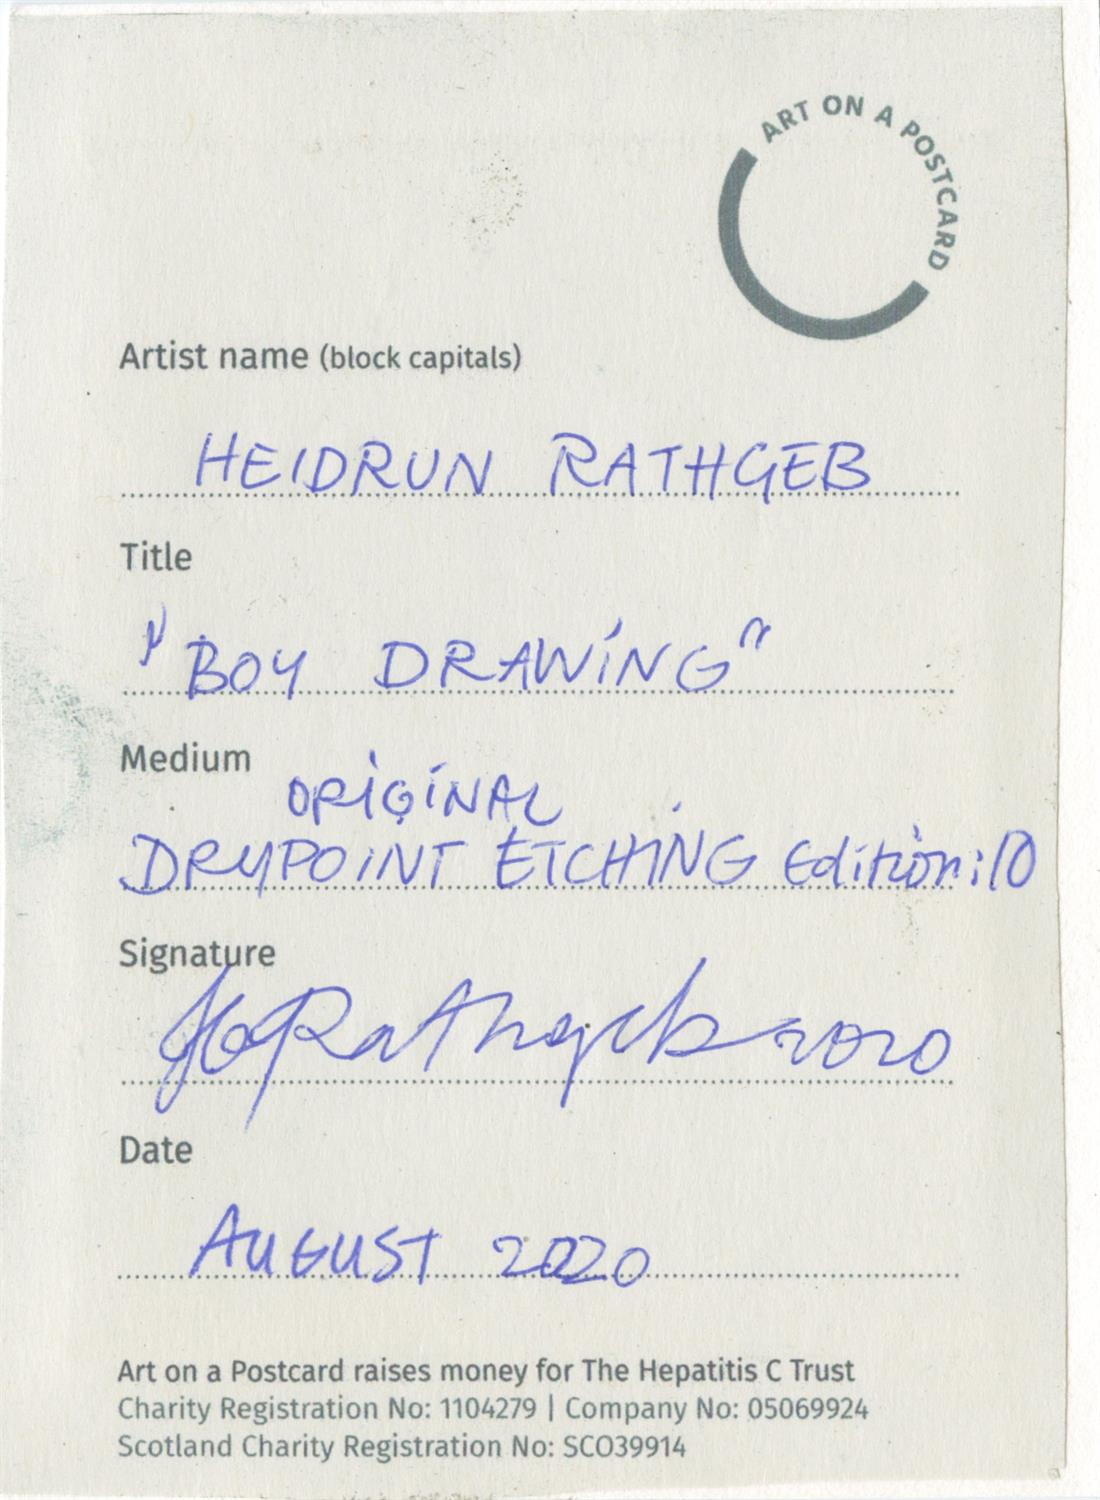 ART ON A POSTCARD
Artist name (block capitals)
HEIDRUN RATHGEB
Title
"BOY DRAWING"
Medium
ORIGINAL
DRYPOINT ETCHING Edition:10
Signature
H Rathgeb 2020
Date
AUGUST 2020
Art on a Postcard raises money for The Hepatitis C Trust
Charity Registration No: 1104279 | Company No: 05069924
Scotland Charity Registration No: SCO39914